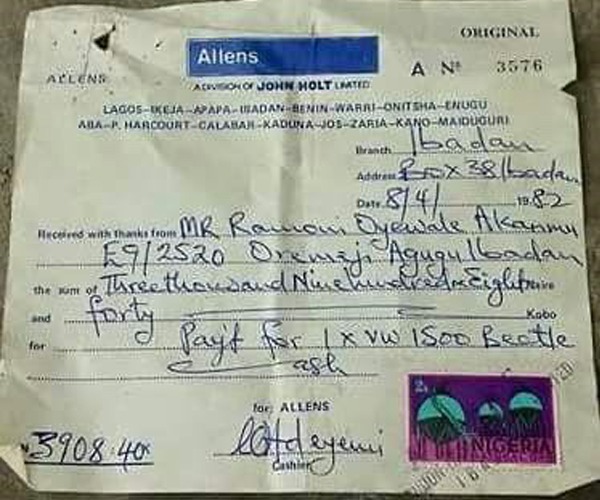 ORIGINAL
ALLENS
Allens
A Nº 3576
A DIVISION OF JOHN HOLT LIMITED
LAGOS-IKEJA-APAPA-IBADAN-BENIN-WARRI-ONITSHA-ENUGU
ABA-P. HARCOURT-CALABAR-KADUNA-JOS-ZARIA-KANO-MAIDUGURI
Branch Ibadan
Address Box 38 Ibadan
Date 8/4/ 1982
Received with thanks from MR Ramoni Oyewale Akanmu
E9/2520 Oremeji Agugu Ibadan
the sum of Three thousand Nine hundred & Eight Naira
and forty Kobo
for Payt for 1 x VW 1500 Beetle
Cash
for: ALLENS
N3908.40K
Cashier
NIGERIA